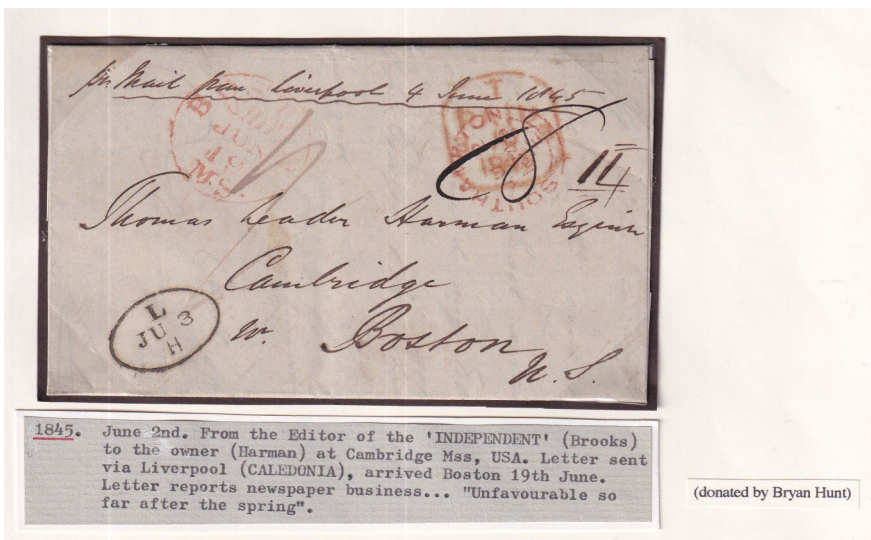 per Mail from Liverpool 4 June 1845
BOSTON
SHIP
JUN
19
MS.
SOUTHAMPTON
8
Thomas Leader Harman Esquire
Cambridge
nr. Boston
U.S.
L
JU 3
H
1845. June 2nd. From the Editor of the 'INDEPENDENT' (Brooks)
to the owner (Harman) at Cambridge Mss, USA. Letter sent
via Liverpool (CALEDONIA), arrived Boston 19th June.
Letter reports newspaper business... "Unfavourable so
far after the spring".
(donated by Bryan Hunt)